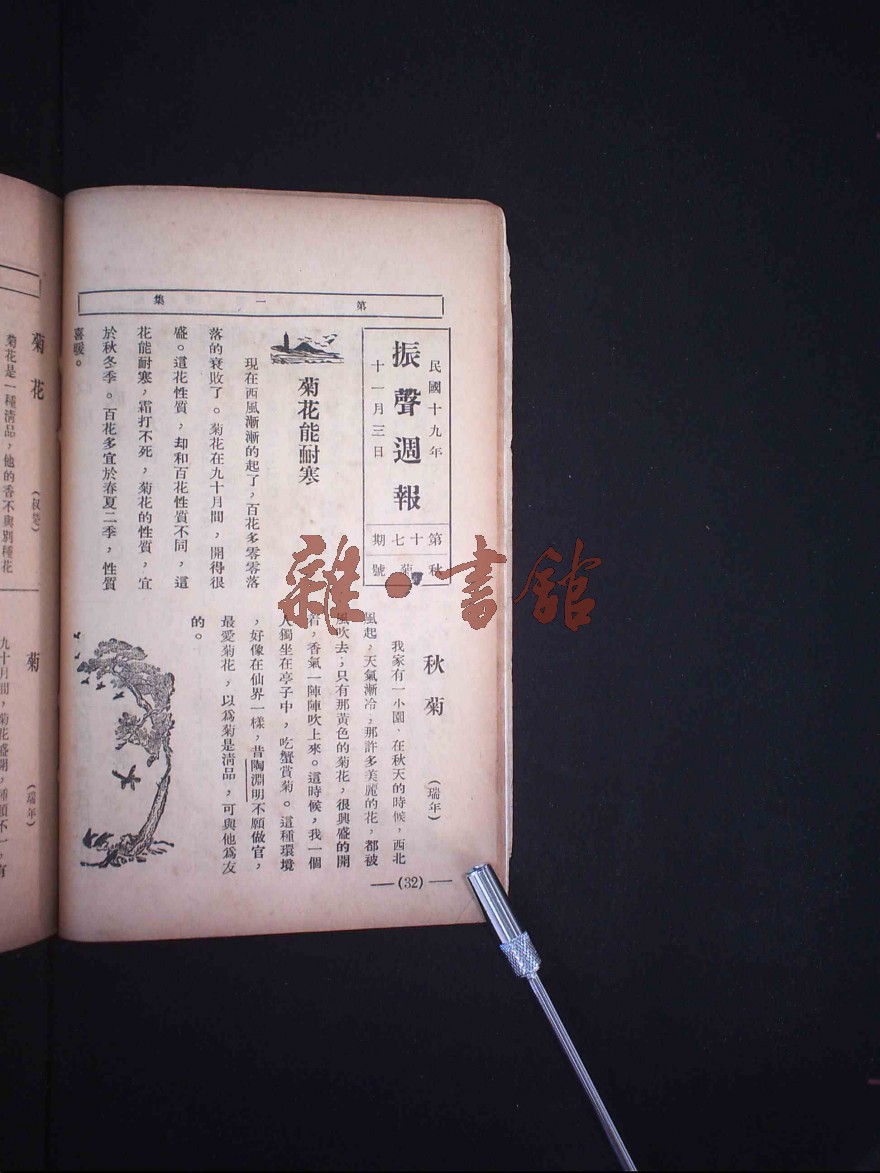 第一集
民國十九年
十一月三日
振聲週報
第十七期
秋菊號
菊花能耐寒
現在西風漸漸的起了，百花多零零落
落的衰敗了。菊花在九十月間，開得很
盛。這花性質，却和百花性質不同，這
花能耐寒，霜打不死，菊花的性質，宜
於秋冬季。百花多宜於春夏二季，性質
喜暖。
秋菊
（瑞年）
我家有一小園，在秋天的時候，西北
風起，天氣漸冷，那許多美麗的花，都被
風吹去；只有那黃色的菊花，很興盛的開
着，香氣一陣陣吹上來。這時候，我一個
人獨坐在亭子中，吃蟹賞菊。這種環境
，好像在仙界一樣，昔陶淵明不願做官，
最愛菊花，以爲菊是清品，可與他爲友
的。
(32)
雜·書館
菊花
菊花是一種清品，他的香不與別種花
菊
（瑞年）
九十月間，菊花盛開，種類不一，有